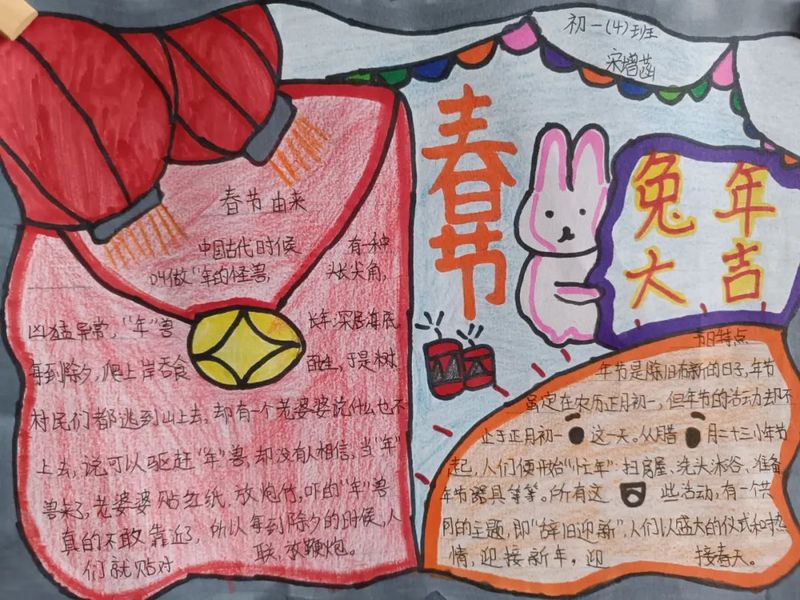 初一(4)班
宋增菡
春节
兔年
大吉
春节由来
中国古代时候 有一种
叫做"年"的怪兽, 头长尖角,
凶猛异常,"年"兽 长年深居海底
每到除夕,爬上岸吞食 畜生,于是村
村民们都逃到山上去,却有一个老婆婆说什么也不
上去,说可以驱赶"年"兽,却没有人相信,当"年"
兽来了,老婆婆贴红纸,放炮竹,吓的"年"兽
真的不敢靠近,所以每到除夕的时候,人
们就贴对 联,放鞭炮。
节日特点
年节是除旧布新的日子,年节
虽定在农历正月初一,但年节的活动却不
止于正月初一 这一天。从腊 月二十三小年节
起,人们便开始"忙年":扫房屋、洗头沐浴、准备
年节器具等等。所有这 些活动,有一个共
同的主题,即"辞旧迎新",人们以盛大的仪式和热
情,迎接新年,迎 接春天。